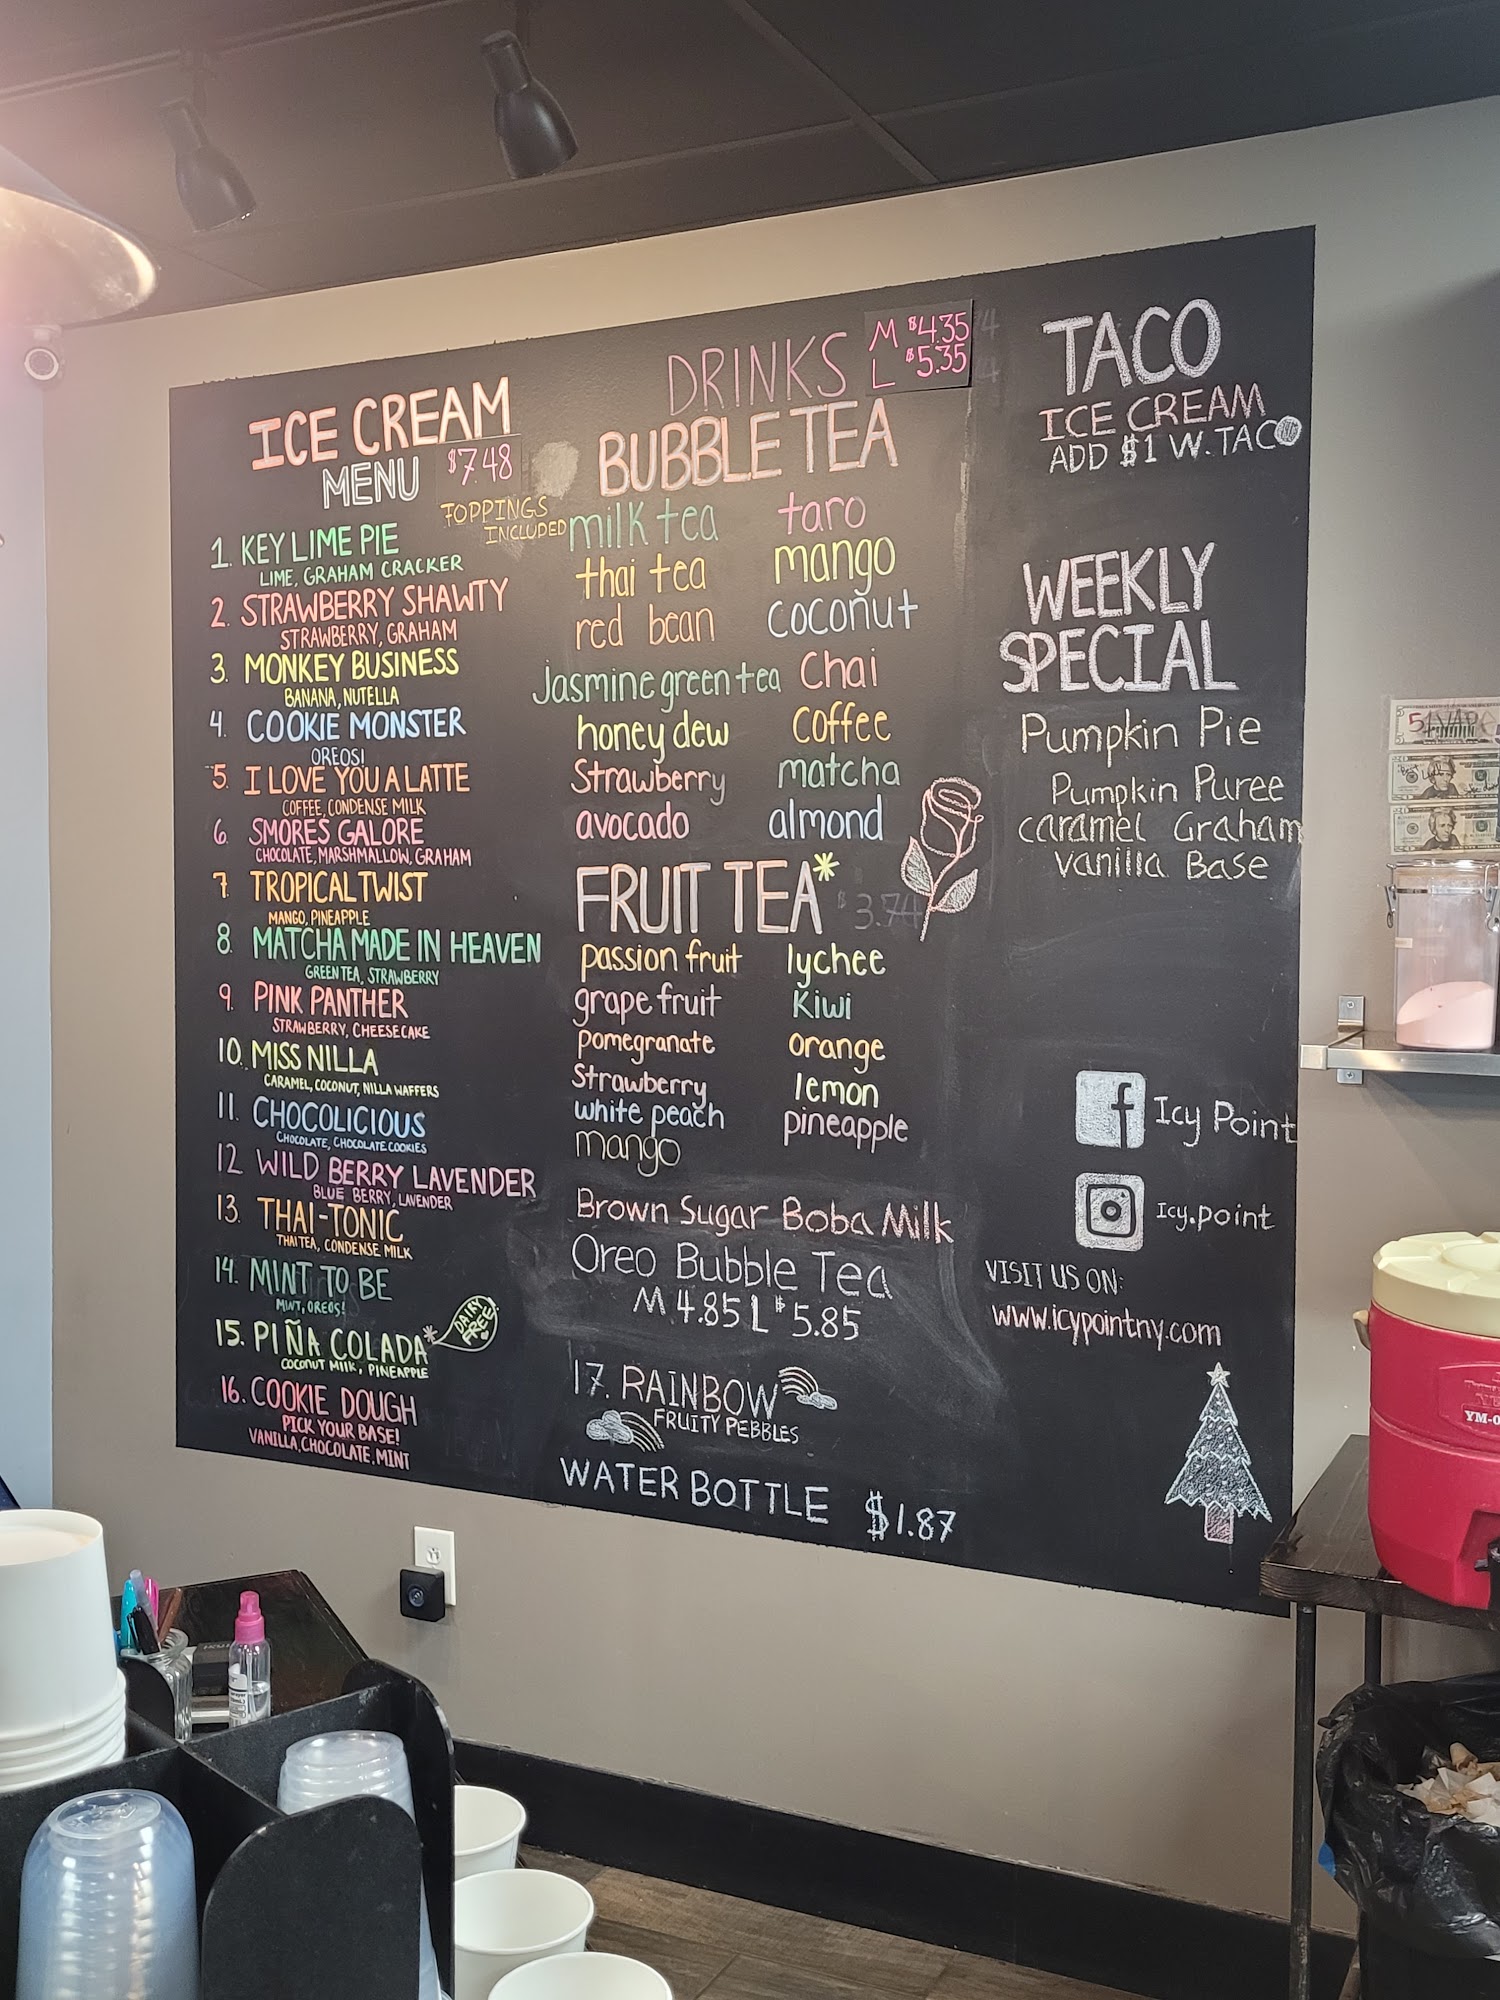 ICE CREAM
MENU $7.48
TOPPINGS
INCLUDED
1. KEY LIME PIE
LIME, GRAHAM CRACKER
2. STRAWBERRY SHAWTY
STRAWBERRY, GRAHAM
3. MONKEY BUSINESS
BANANA, NUTELLA
4. COOKIE MONSTER
OREOS!
5. I LOVE YOU A LATTE
COFFEE, CONDENSE MILK
6. SMORES GALORE
CHOCOLATE, MARSHMALLOW, GRAHAM
7. TROPICAL TWIST
MANGO, PINEAPPLE
8. MATCHA MADE IN HEAVEN
GREEN TEA, STRAWBERRY
9. PINK PANTHER
STRAWBERRY, CHEESECAKE
10. MISS NILLA
CARAMEL, COCONUT, NILLA WAFFERS
11. CHOCOLICIOUS
CHOCOLATE, CHOCOLATE COOKIES
12 WILD BERRY LAVENDER
BLUE BERRY, LAVENDER
13. THAI-TONIC
THAI TEA, CONDENSE MILK
14. MINT TO BE
MINT, OREOS!
15. PIÑA COLADA*
DAIRY FREE!
COCONUT MILK, PINEAPPLE
16. COOKIE DOUGH
PICK YOUR BASE!
VANILLA, CHOCOLATE, MINT
DRINKS M $4.35
L $5.35
BUBBLE TEA
milk tea taro
thai tea mango
red bean coconut
Jasmine green tea Chai
honey dew coffee
Strawberry matcha
avocado almond
FRUIT TEA* $3.74
passion fruit lychee
grape fruit Kiwi
pomegranate orange
Strawberry lemon
white peach pineapple
mango
Brown Sugar Boba Milk
Oreo Bubble Tea
M 4.85 L $5.85
17. RAINBOW
FRUITY PEBBLES
WATER BOTTLE $1.87
TACO
ICE CREAM
ADD $1 W. TACO
WEEKLY
SPECIAL
Pumpkin Pie
Pumpkin Puree
caramel Graham
vanilla Base
f Icy Point
Icy.point
VISIT US ON:
www.icypointny.com